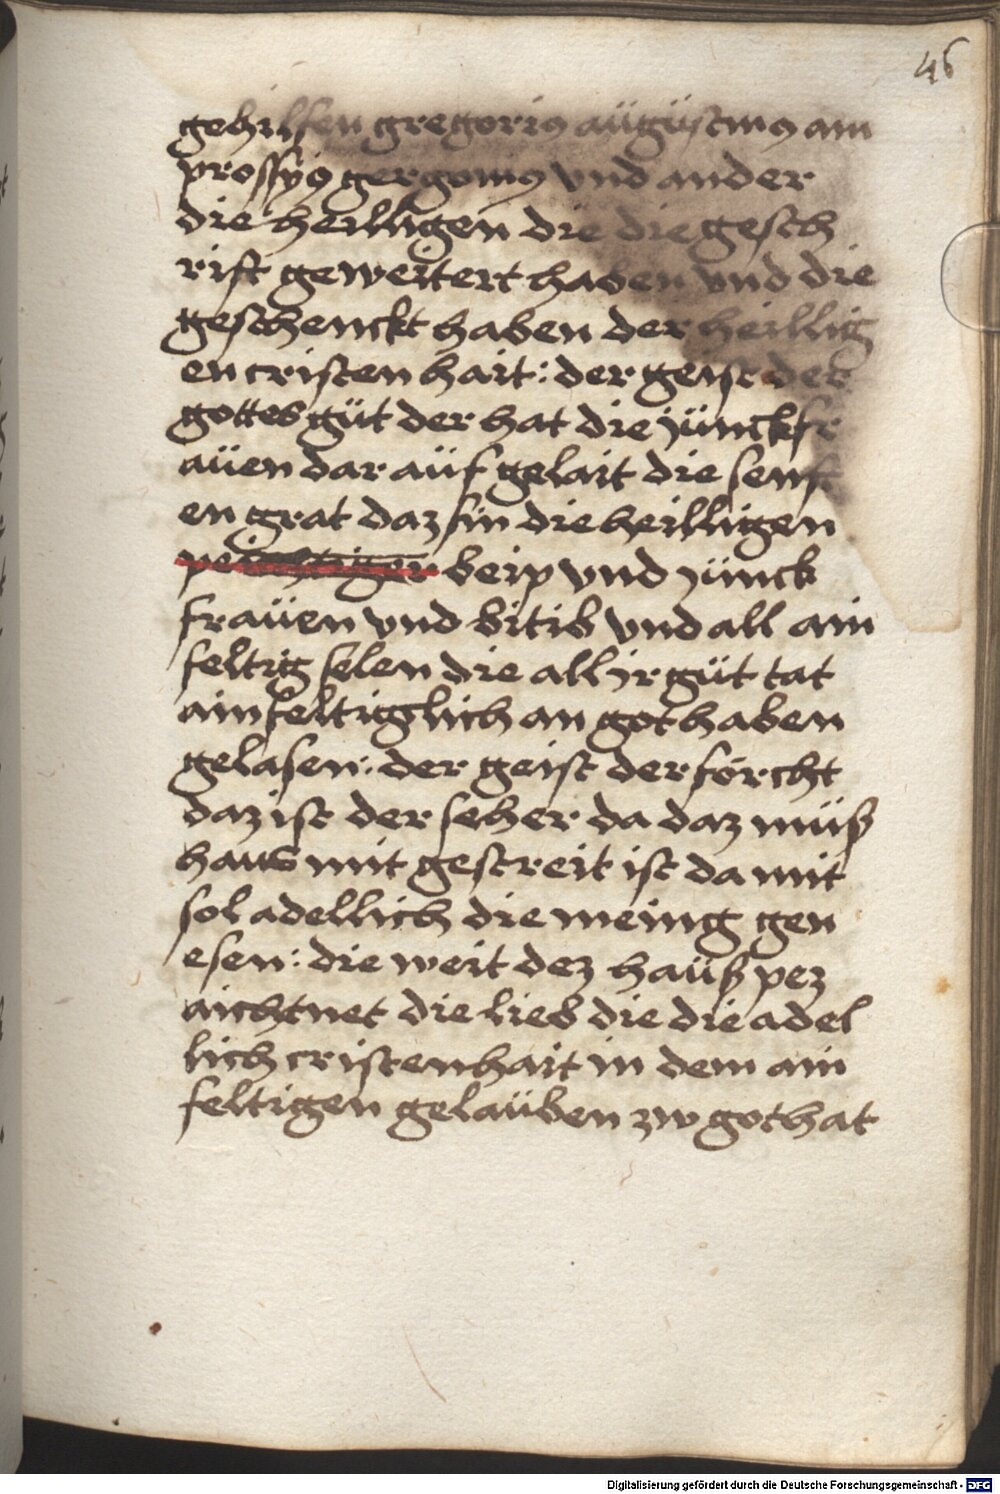 46
gehilffen gregoriꝰ aügüstinꝰ am
prossÿꝰ gergoniꝰ vnd ander
die heilligen die die gesch
rift geweitert haben vnd die
geschenckt haben der heillig
en cristen hait : der geist der
gottes güt der hat die jünckfr
aüen dar aüf gelait die senft
en grat daz sin die heilligen
beip vnd jünck
fraüen vnd bitib vnd all ain
feltig selen die all ir güt tat
ainfeltiglich an got haben
gelasen : der geist der förcht
daz ist der seher da daz müß
haus mit gestreit ist da mit
sol adellich die meinig gen
esen : die weit dez haüß pez
aichtnet die lieb die die adel
lich cristenhait in dem ain
feltigen gelaüben zw got hat
Digitalisierung gefördert durch die Deutsche Forschungsgemeinschaft - DFG